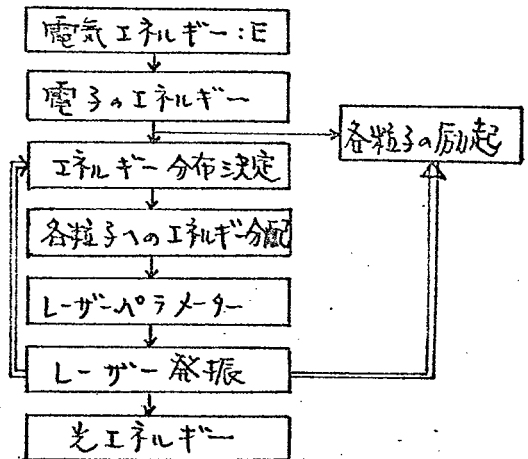 電気エネルギー:E
電子のエネルギー
各粒子の励起
エネルギー分布決定
各粒子へのエネルギー分配
レーザーパラメーター
レーザー発振
光エネルギー